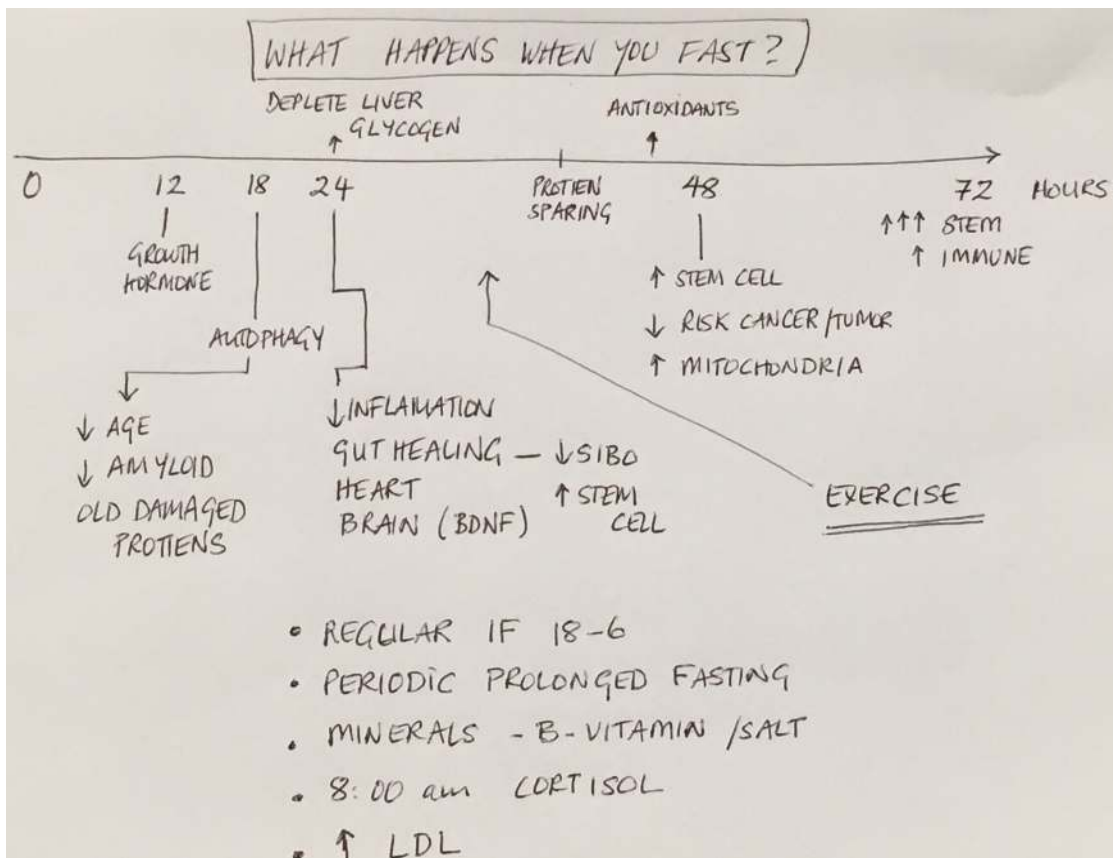 WHAT HAPPENS WHEN YOU FAST?
DEPLETE LIVER
↑ GLYCOGEN
ANTIOXIDANTS
↑
0 12 18 24 PROTIEN SPARING 48 72 HOURS
GROWTH
HORMONE
AUTOPHAGY
↓ AGE
↓ AMYLOID
OLD DAMAGED
PROTIENS
↓ INFLAMATION
GUT HEALING — ↓ SIBO
HEART ↑ STEM
BRAIN (BDNF) CELL
↑ STEM CELL
↓ RISK CANCER/TUMOR
↑ MITOCHONDRIA
↑↑↑ STEM
↑ IMMUNE
EXERCISE
• REGULAR IF 18-6
• PERIODIC PROLONGED FASTING
• MINERALS - B-VITAMIN /SALT
• 8:00 am CORTISOL
• ↑ LDL